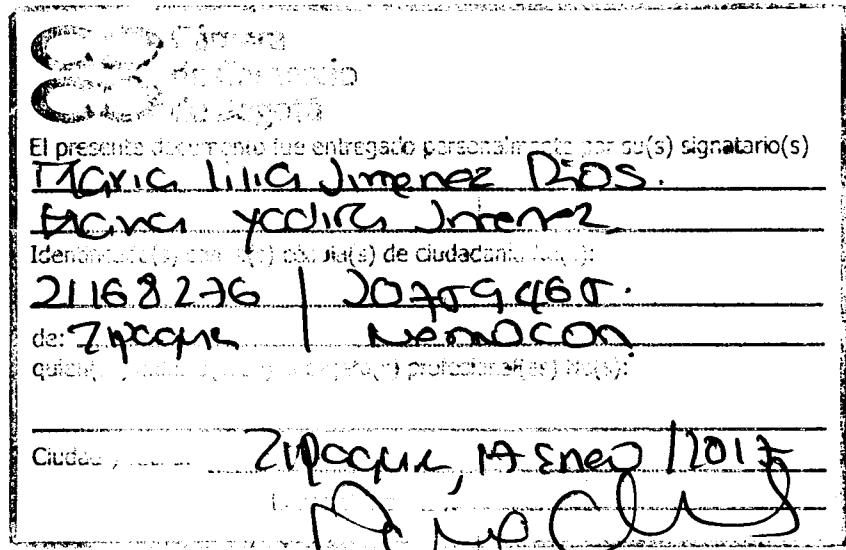 Cámara
de Comercio
de Bogotá
El presente documento fue entregado personalmente por su(s) signatario(s)
Maria lilia Jimenez Rios.
Jimenez
Identificado(s) con la(s) cédula(s) de ciudadanía No(s):
21168276 |
de: Zipaquira | Nemocon
profesional(es) No(s):
Ciudad y fecha: Zipaquira, 17 Enero /2017